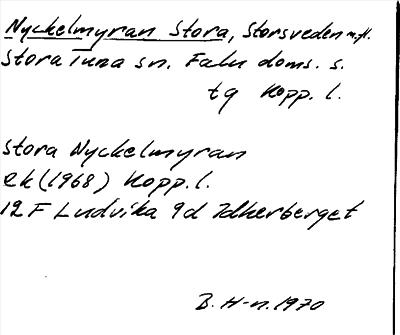 Nyckelmyran Stora, Storsveden m.fl.
Stora Tuna sn. Falu doms. s.
tg Kopp. l.
Stora Nyckelmyran
ek (1968) Kopp. l.
12 F Ludvika 9d Idkerberget
B. H-n. 1970